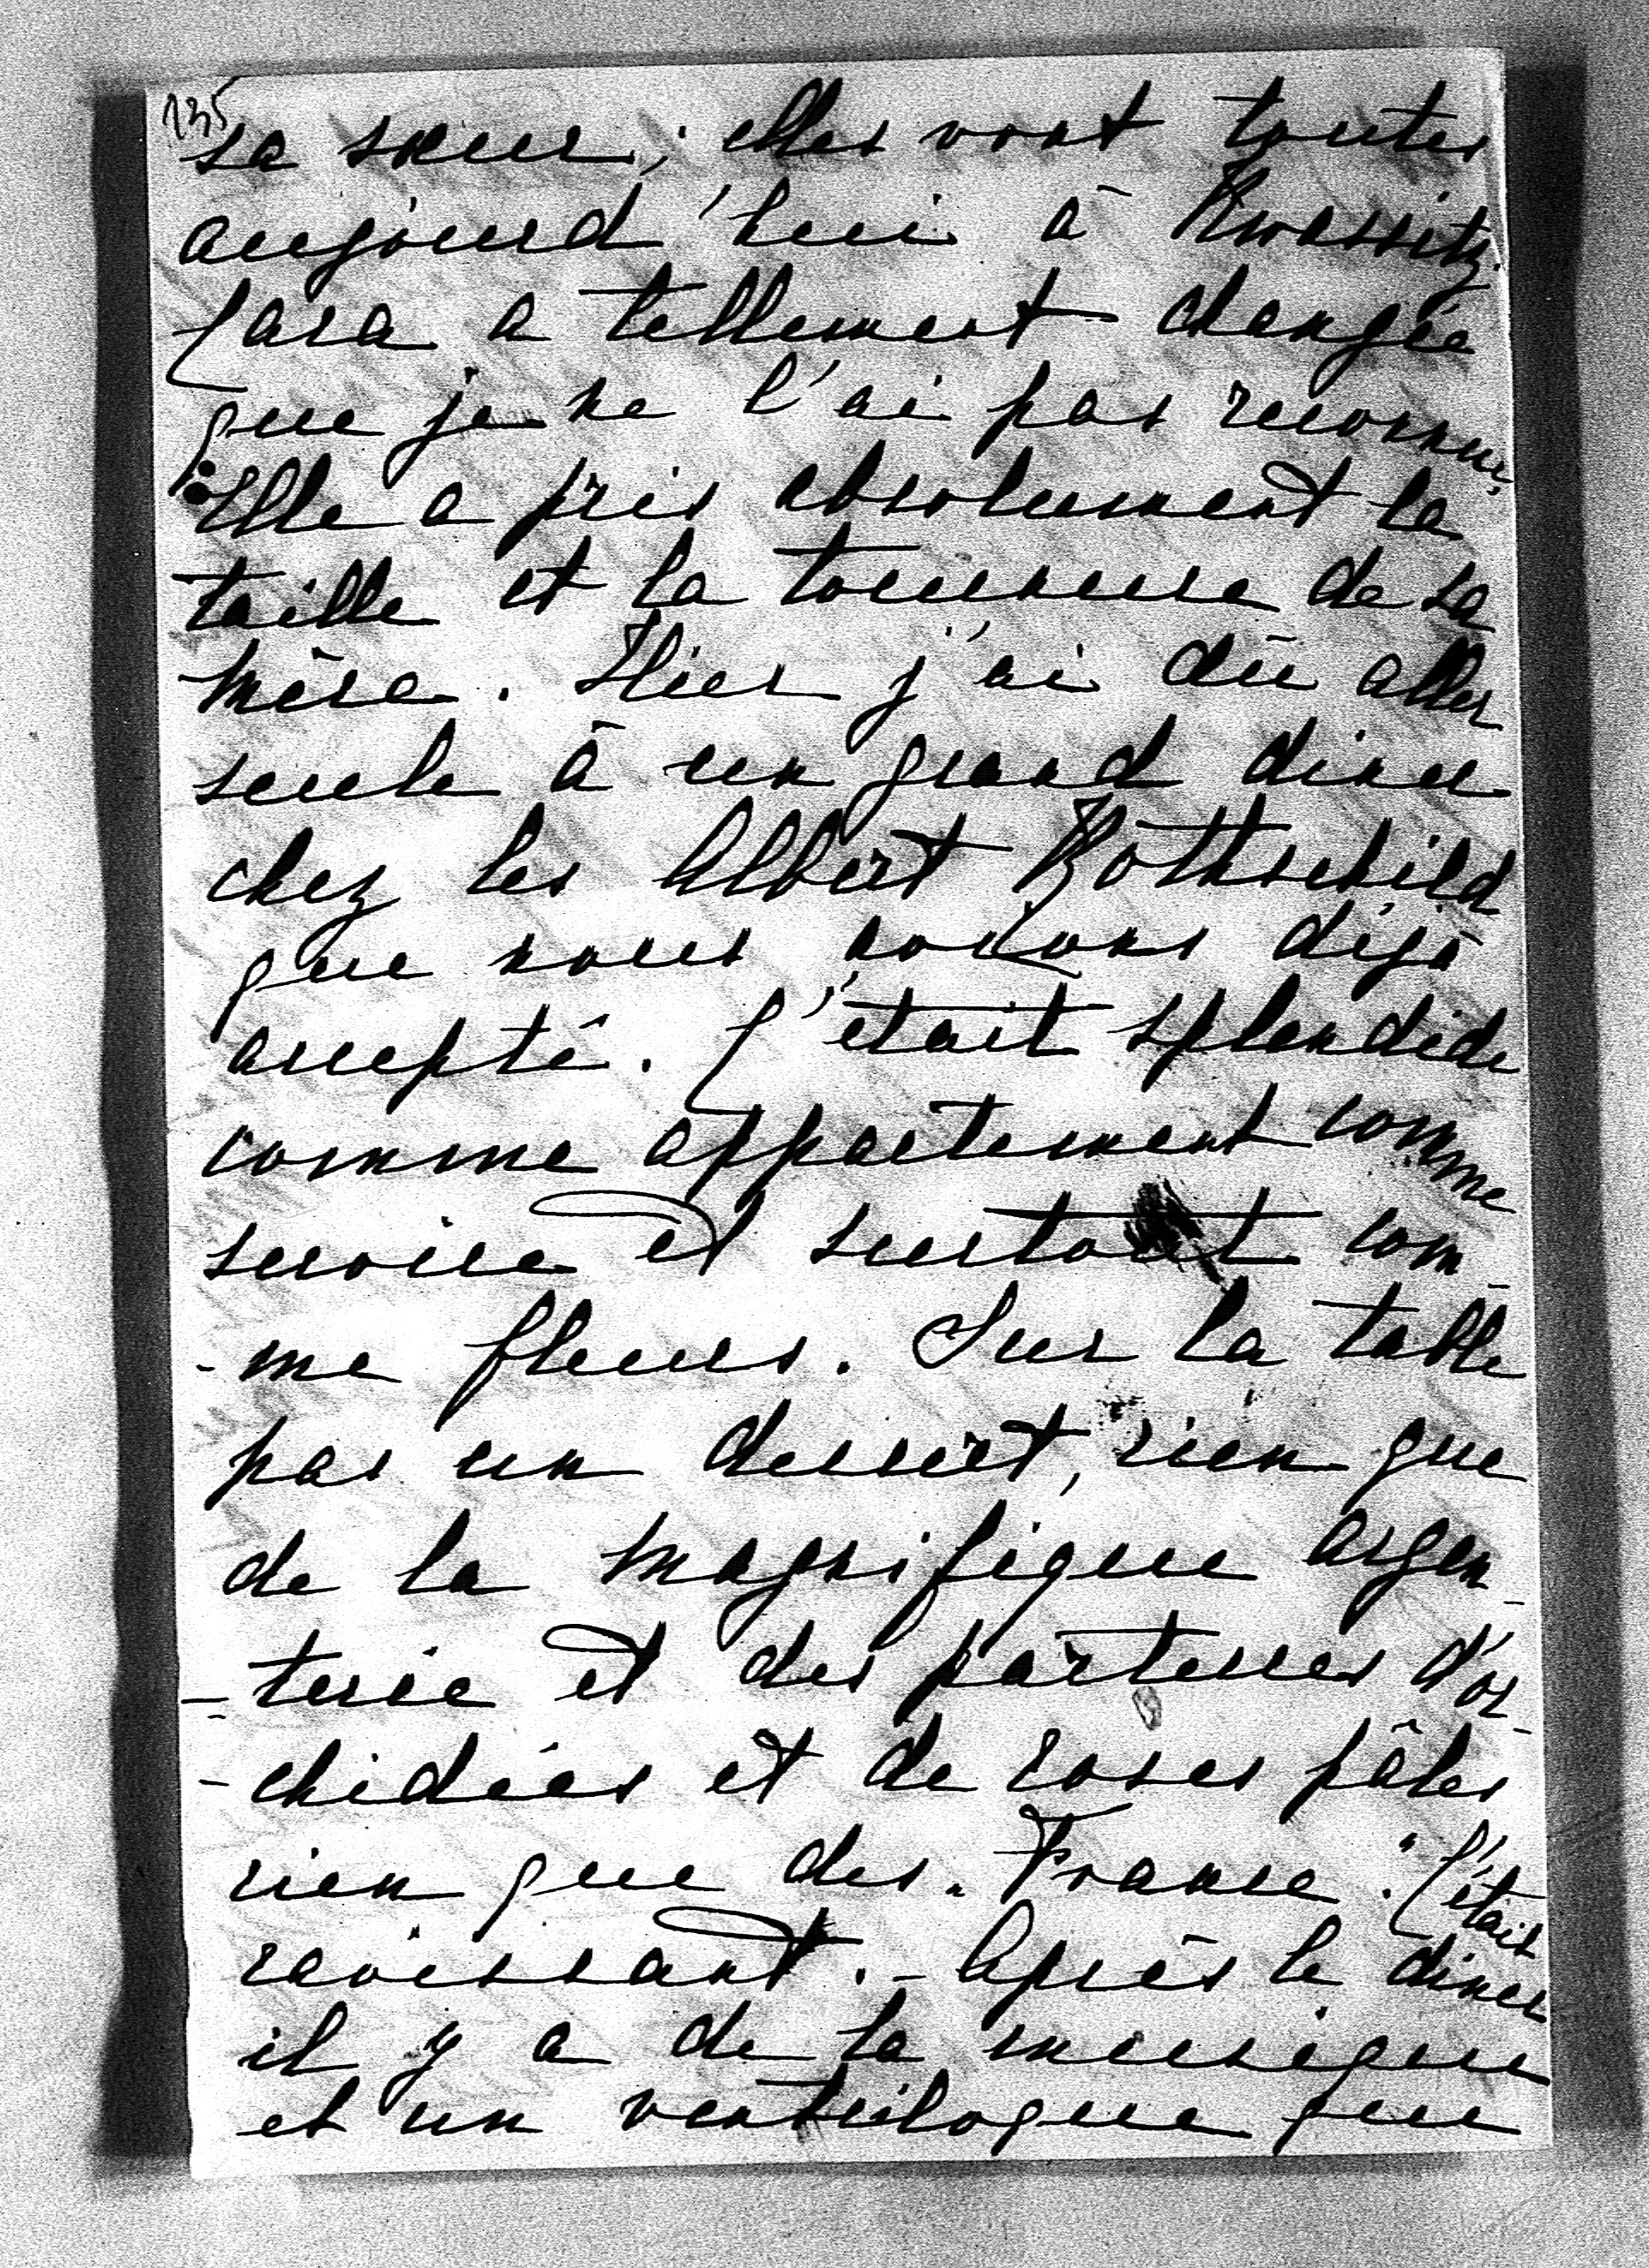 135
sa sœur; elles vont toutes
aujourd'hui à Kwassitz.
Cara a tellement changée
que je ne l'ai pas reconnue,
Elle a pris absolument la
taille et la tournure de sa
mère. Hier j'ai dû aller
seule à un grand diner
chez les Albert Rothschild
que nous avions déjà
accepté. C'était splendide
comme appartement comme
service et surtout com-
-me fleurs. Sur la table
pas un dessert, rien que
de la magnifique argen-
-terie et des parterres d'or-
-chidées et de roses pâles
rien que des "France". C'était
ravissant. - Après le diner
il y a de la musique
et un ventrilogue que